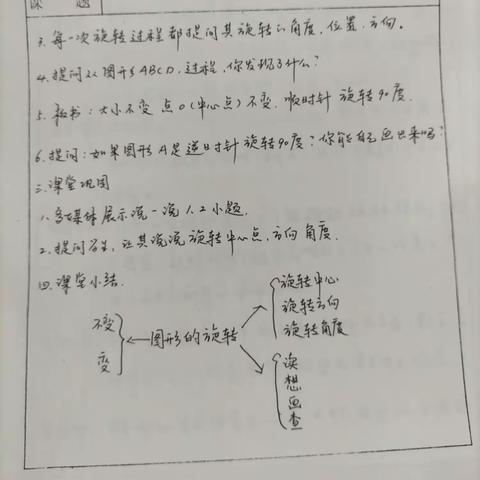 课 题
3. 每一次旋转过程都提问其旋转的角度,位置,方向。
4. 提问从图形到ABCD,过程,你发现了什么?
5. 板书:大小不变 点O(中心点)不变,顺时针 旋转90度.
6. 提问:如果图形A是逆时针旋转90度?你能自己画出来吗?
三.课堂巩固
1. 多媒体展示说一说1.2小题.
2. 提问学生,让其说说旋转中心点,方向角度.
四.课堂小结.
不变
变
图形的旋转
旋转中心
旋转方向
旋转角度
读
想
画
查